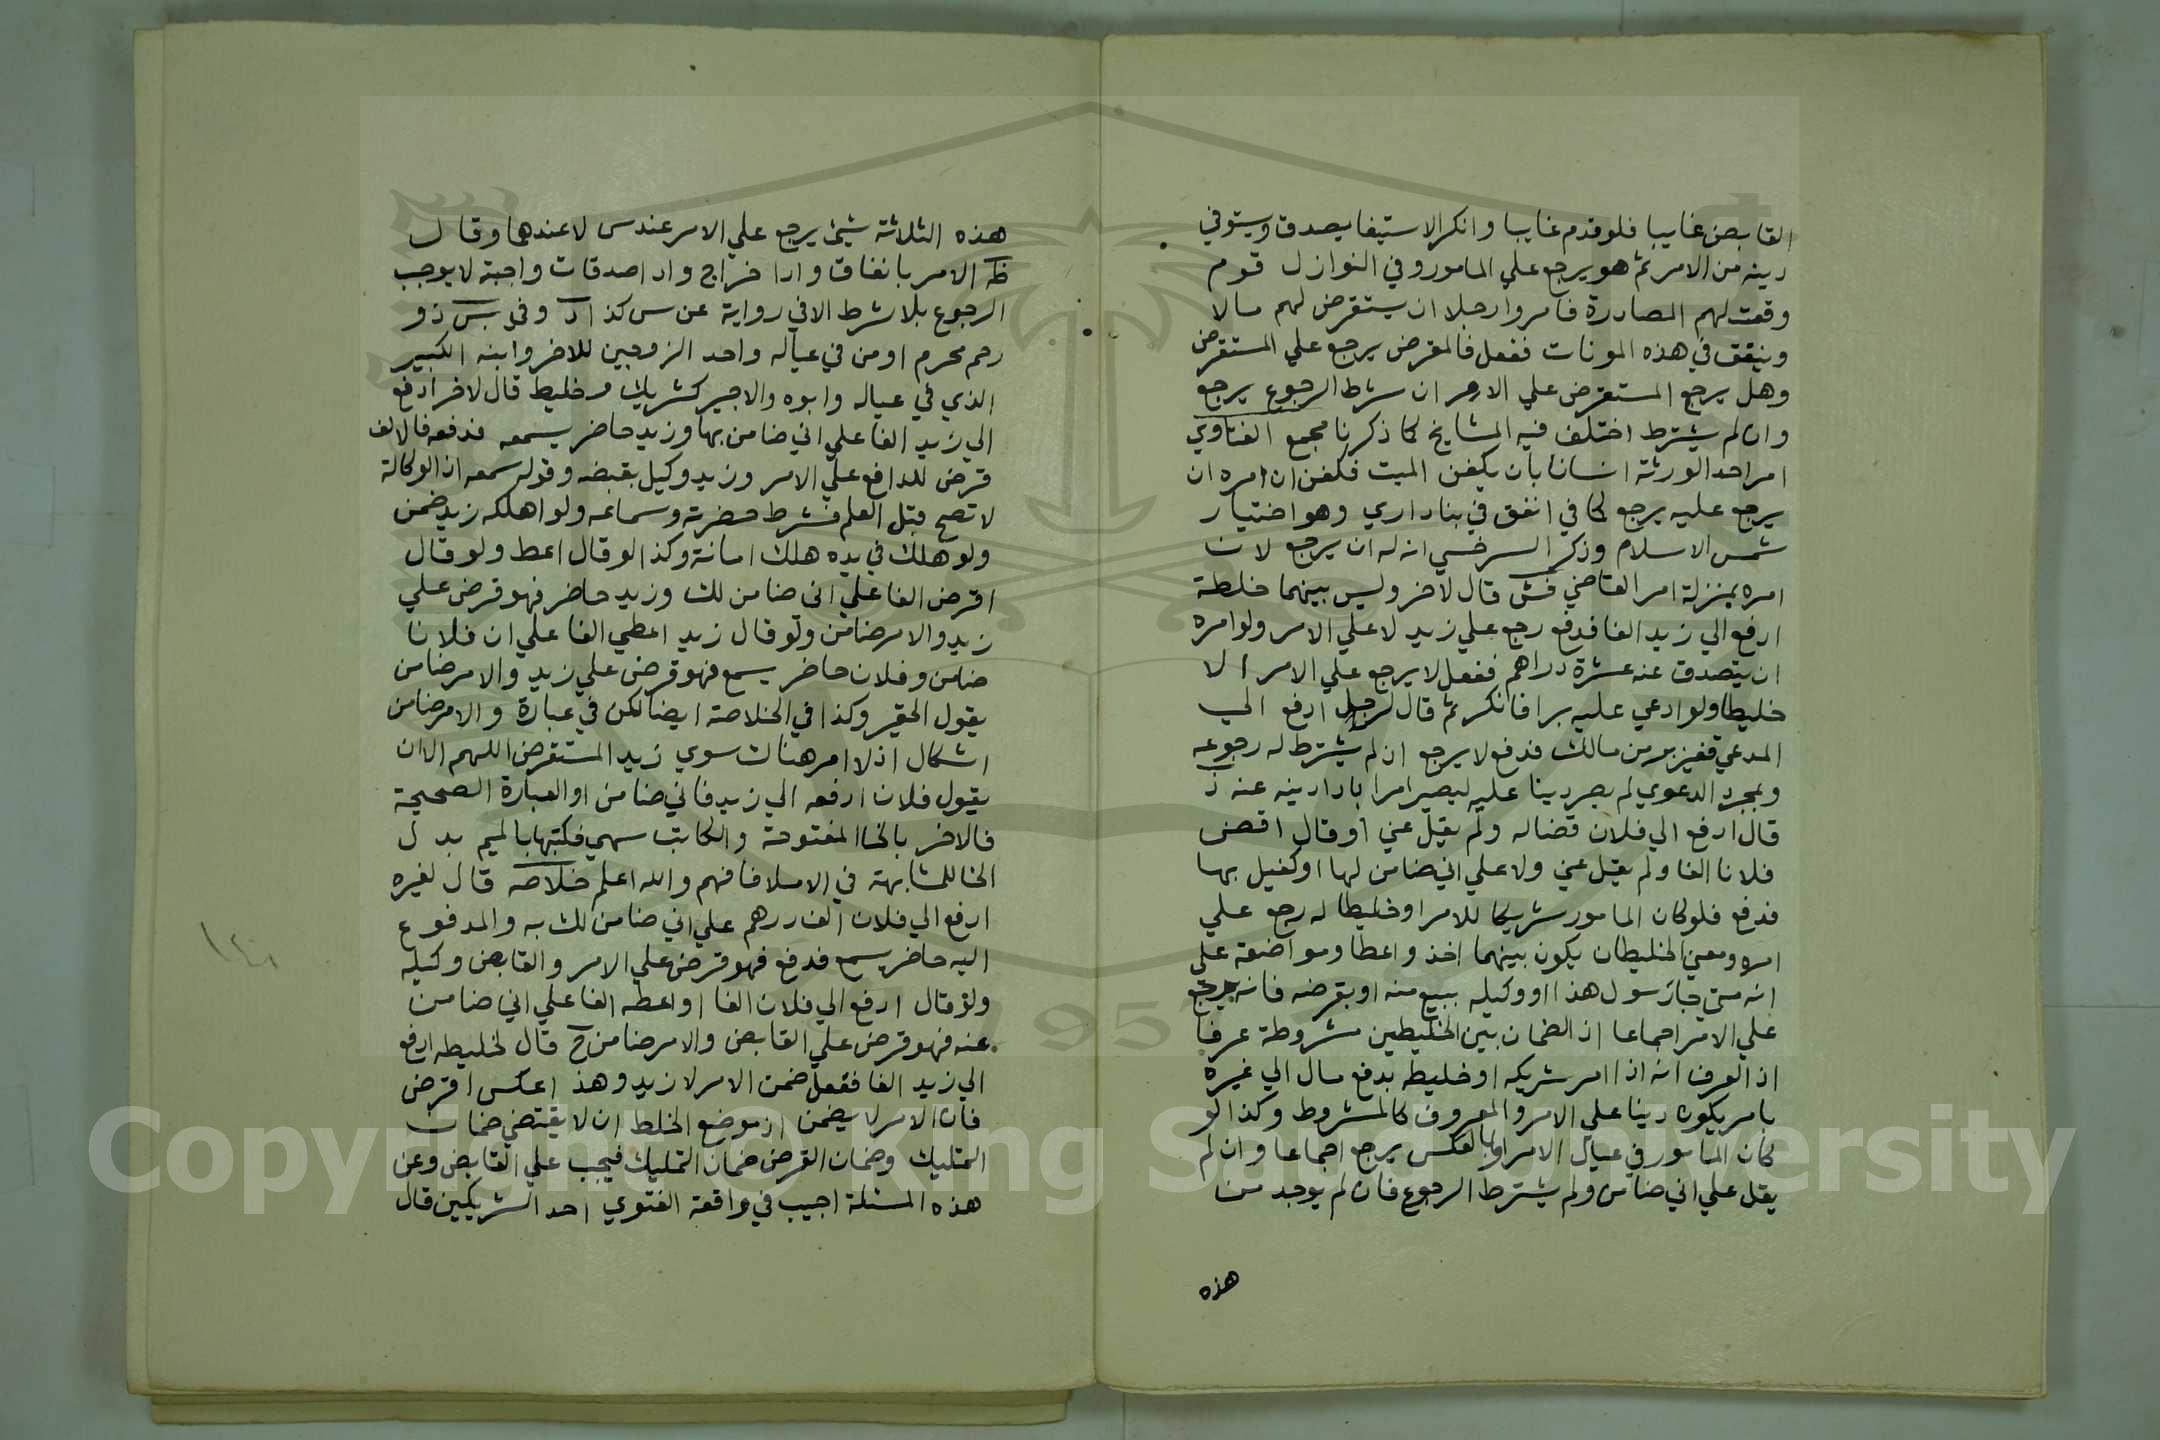 القابض غايبا فلو قدم غايبا وانكر الاستيفا يصدق ويستوفي
دينه من الامر ثم هو يرجع علي المامور وفي النوازل قوم
وقعت لهم المصادرة فامروا رجلا ان يستقرض لهم مالا
وينفق في هذه المونات ففعل فالمقرض يرجع علي المستقرض
وهل يرجع المستقرض علي الامر ان شرط الرجوع يرجع
وان لم يشترط اختلف فيه المشايخ كما ذكرنا مجمع الفتاوي
امر احد الورثة انسانا بان يكفن الميت فكفن ان امره ان
يرجع عليه يرجع كما في انفق في بنا داري وهو اختيار
شمس الاسلام وذكر السرخسي انه له ان يرجع لان
امره بمنزلة امر القاضي فش قال لاخر وليس بينهما خلطة
ادفع الي زيد الفا فدفع رجع علي زيد لا علي الامر ولو امره
ان يتصدق عنه عشرة دراهم ففعل لا يرجع علي الامر الا
خليطا ولو ادعي عليه برا فانكر ثم قال لرجل ادفع الي
المدعي قفيز بر من مالك فدفع لا يرجع ان لم يشترط له رجوعه
وبمجرد الدعوي لم يصر دينا عليه ليصير امرا بادا دينه عنه ذ
قال ادفع الي فلان قضاله ولم يقل عني او قال اقض
فلانا الفا ولم يقل عني ولا علي اني ضامن لها او كفيل بها
فدفع فلو كان المامور شريكا للامر او خليطا له رجع علي
امره ومعني الخليطان يكون بينهما اخذ واعطا ومواضعة علي
انه متي جا رسول هذا او وكيله يبيع منه او يقرضه فانه يرجع
علي الامر اجماعا اذ الضمان بين الخليطين مشروطة عرفا
اذ العرف انه اذا امر شريكه او خليطه بدفع مال الي غيره
بامر يكون دينا علي الامر والمعروف كالمشروط وكذا لو
كان المامور في عيال الامر او بالعكس يرجع اجماعا وان لم
يقل علي اني ضامن ولم يشترط الرجوع فان لم يوجد من
هذه
هذه الثلاثة شيئ يرجع علي الامر عند س لا عندهما وقال
ظه الامر بانفاق وادا خراج وادا صدقات واجبة لا يوجب
الرجوع بلا شرط الا في رواية عن س كذا وفي ذو
رحم محرم او من في عياله واحد الزوجين للاخر وابنه الكبير
الذي في عياله وابوه والاجير كشريك وخليط قال لاخر ادفع
الي زيد الفا علي اني ضامن بها وزيد حاضر يسمعه فدفعه فالالف
قرض للدافع علي الامر وزيد وكيل بقبضه وقوله سمعه اذ الوكالة
لا تصح قبل العلم فشرط حضرته وسماعه ولو اهلكه زيد ضمن
ولو هلك في يده هلك امانة وكذا لو قال اعط ولو قال
اقرض الفا علي اني ضامن لك وزيد حاضر فهو قرض علي
زيد والامر ضامن ولو قال زيد اعطي الفا علي ان فلانا
ضامن وفلان حاضر يسمع فهو قرض علي زيد والامر ضامن
يقول الحقير وكذا في الخلاصة ايضا لكن في عبارة والامر ضامن
اشكال اذ لا امر هناك سوي زيد المستقرض اللهم الا ان
يقول فلان ادفعه الي زيد فاني ضامن او العبارة الصحيحة
فالاخر بالخا المفتوحة والكاتب سهي فكتبها بالميم بدل
الخا للمشابهة في الاملا فافهم والله اعلم خلاصه قال لغيره
ادفع الي فلان الف درهم علي اني ضامن لك به والمدفوع
اليه حاضر يسمع فدفع فهو قرض علي الامر والقابض وكيله
ولو قال ادفع الي فلان الفا او اعطه الفا علي اني ضامن
عنه فهو قرض علي القابض والامر ضامن ح قال لخليطه ادفع
الي زيد الفا ففعل ضمن الامر لا زيد وهذا عكس اقرض
فان الامر لا يضمن اذ موضع الخلط ان لا يقتضي ضمان
التمليك وضمان القرض ضمان التمليك فيجب علي القابض وعن
هذه المسئلة اجيب في واقعة الفتوي احد الشريكين قال
١٤٠
Copyright © King Saud University
1957